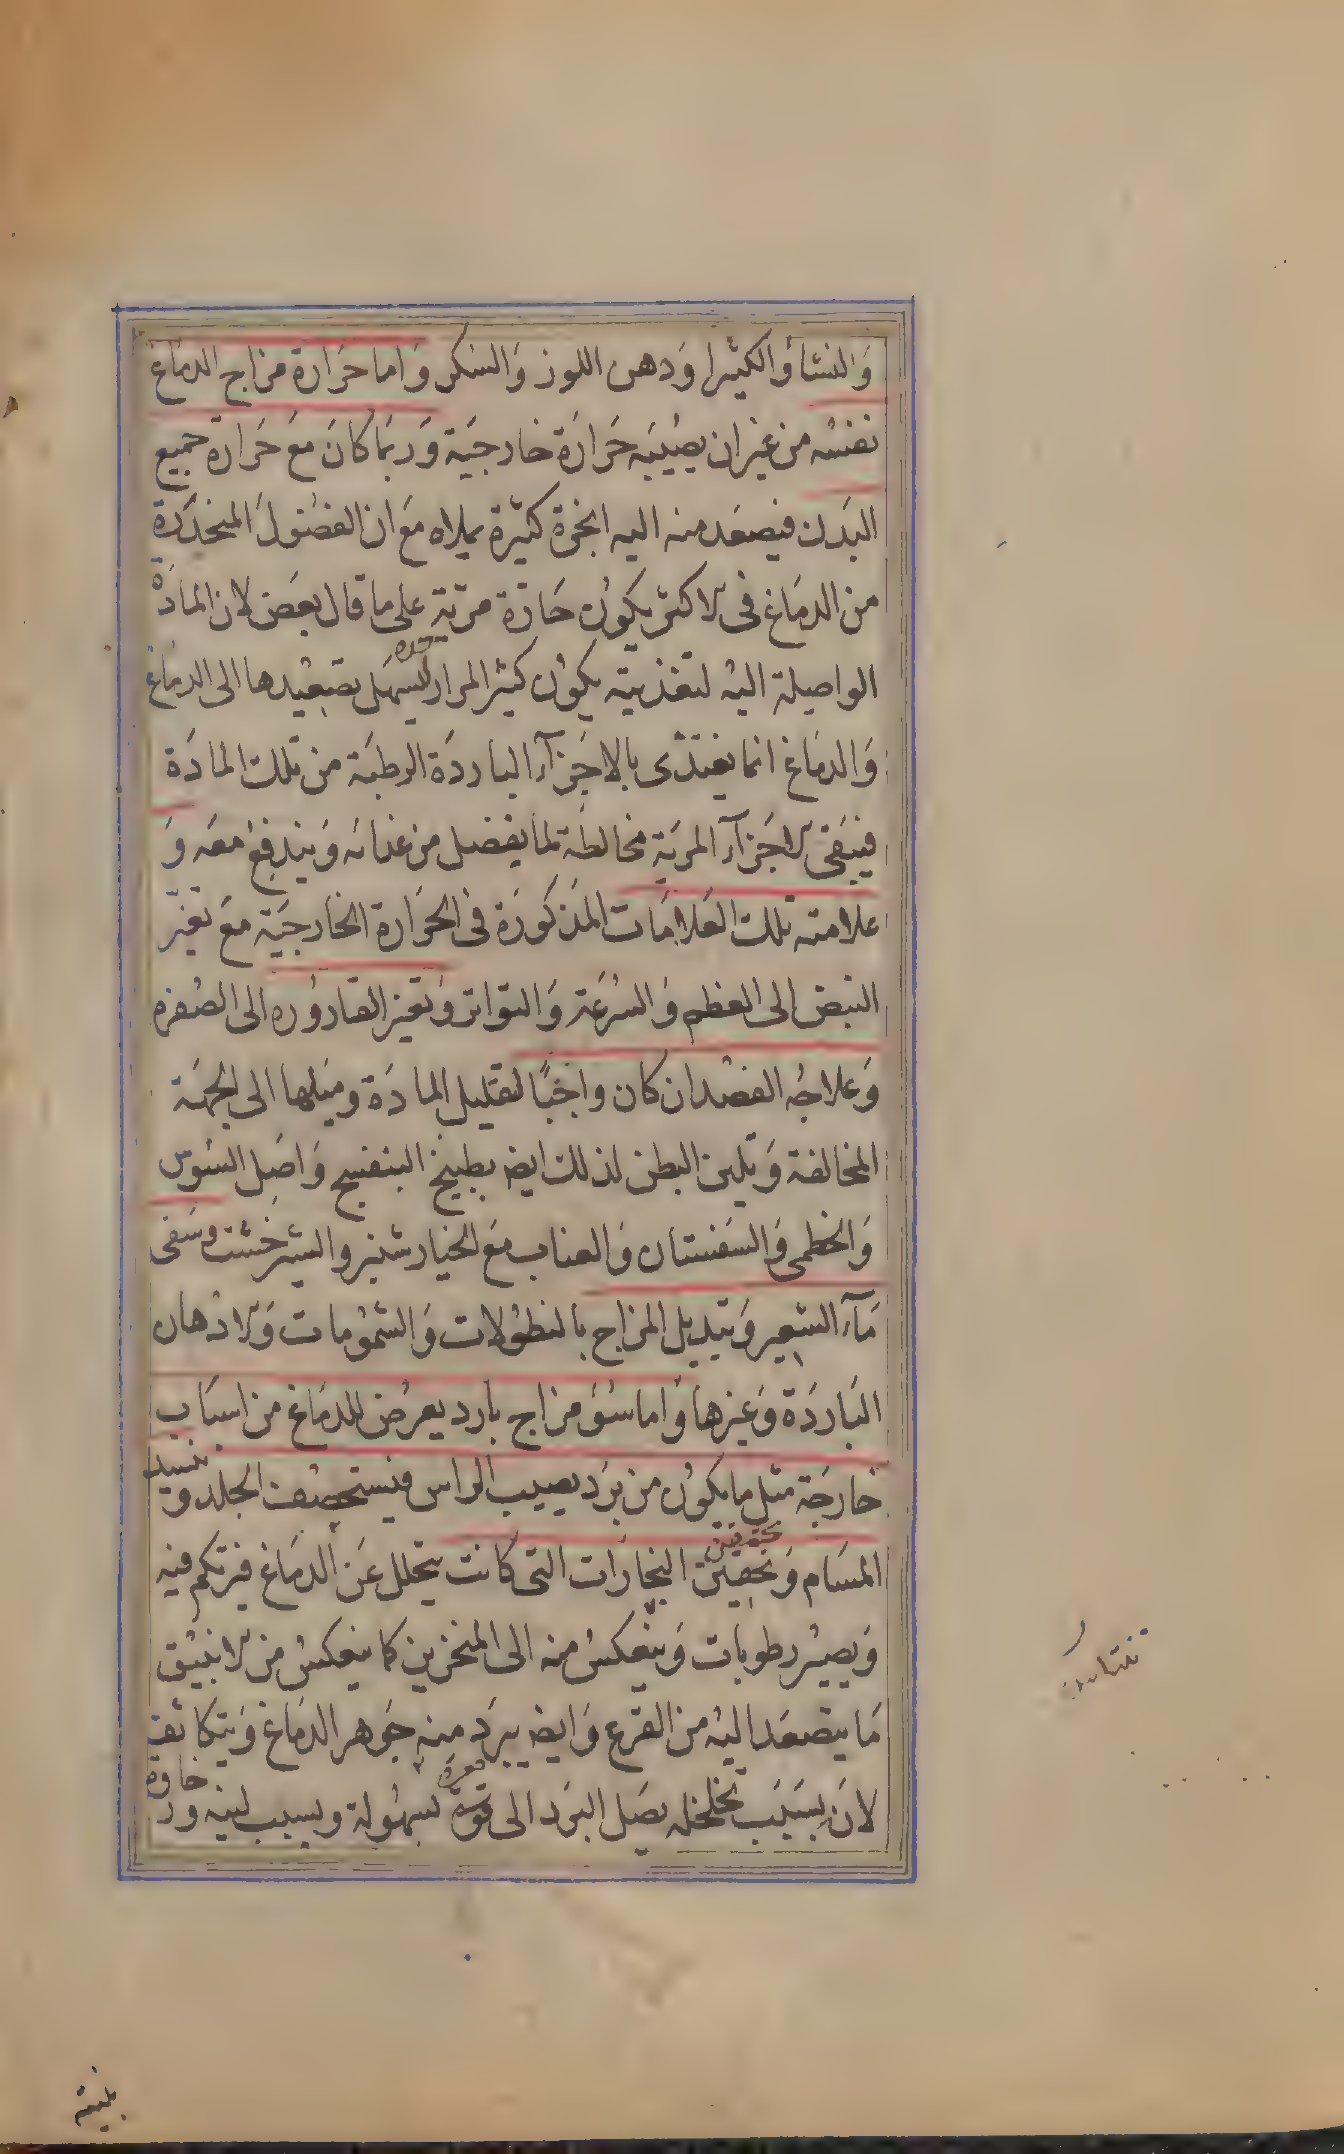 وَالنشا وَالكثيرا وَدهن اللوز وَالسكر وَاما حَرارة مزاج الدماغ
نفسُه من غير ان يصيبَه حَرارَة خارجيَة وَربمَا كانَ مَع حَرارة جميع
البَدَن فيصعَد منه اليه ابخرة كثيرة يملاه مَع ان الفضُولَ المنحدَرة
من الدمَاغ فى الاكثر يكون حَارّة مرّية على ما قال بعَض لان المادَة
الواصلة اليه لتغذيته يكون كثير المرار ليسهَل تصعيدها الى الدمَاغ
وَالدمَاغ انما يغتذى بالاجزآء البارَدة الرطبَة من تلك المادَة
فيبَقى الاجَزآء المريَة مخالطَة لما يفضل من غذائه وَيندفع معَه وَ
علامته تلك العَلامَات المذكورَة فى الحَرارة الخارجيَة مَع تغيّر
النبض الى العظم وَالسُرعَة وَالتواتر وَتغير القارورَه الى الصُفره
وَعلاجُه الفصدُ ان كان واجبًا لتقليل المادَة وميلها الى الجهَة
المخالفة وَتليين البطن لذلك ايضا بطبيخ البنفسج وَاصَل السُوس
وَالخطمى وَالسَفستان وَالعناب مَع الخيارشنبر والشيرخشت وسَقى
مَآء الشعير وَتبديل المزاج بالنطُولات وَالشمُومات وَالادهان
البَاردَة وَغيرها وَاما سُوَء مزاج بارد يعرُض للدمَاغ من اسبَاب
خارجَة مثل ما يكون من بَرَد يصيب الراس فيستحصف الجلد و ينسد
المسَام وَتحقين البخارَات التى كانت يتحلل عَن الدمَاغ فيرتكم فيه
وَيصيْر رطوبات وَينعكسُ منه الى المنخرين كما ينعكسُ من الانبيْق
مَا يتصعَد اليْه من القرع وَايضا يبرَد منه جَوهر الدمَاغ وَيتكاثف
لانَ بسَبَب تخلخله يصَل البرَد الى قعره بسهُولة وبسبب لينه ورخاوة
بنيته